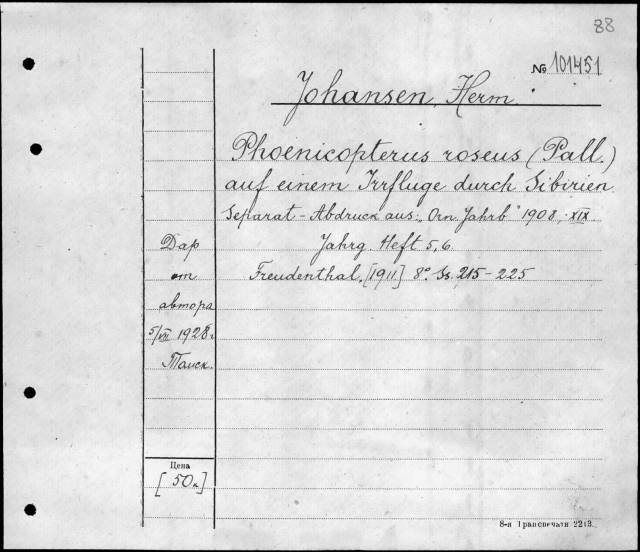 88
№ 101451
Johansen, Herm.
Phoenicopterus roseus (Pall.)
auf einem Irrfluge durch Sibirien.
Separat-Abdruck aus: „Orn. Jahrb" 1908, XIX
Jahrg. Heft 5, 6
Freudenthal. [1911] 8° Ss. 215-225
Дар
от
автора
5/VII 1928 г.
Томск.
Цена
[50к]
8-я Транспечати 2213.